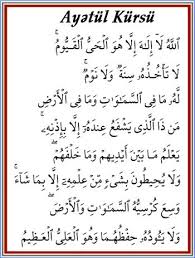 Ayətül Kürsü
اَللّٰهُ لَٓا اِلٰهَ اِلَّا هُوَ الْحَىُّ الْقَيُّومُۚ
لَا تَاْخُذُهُ سِنَةٌ وَلَا نَوْمٌۜ
لَهُ مَا فِى السَّمٰوَاتِ وَمَا فِى الْاَرْضِۜ
مَنْ ذَا الَّذِى يَشْفَعُ عِنْدَهُٓ اِلَّا بِاِذْنِهٖۜ
يَعْلَمُ مَا بَيْنَ اَيْدِيهِمْ وَمَا خَلْفَهُمْۚ
وَلَا يُحِيطُونَ بِشَىْءٍ مِنْ عِلْمِهٖٓ اِلَّا بِمَا شَٓاءَۚ
وَسِعَ كُرْسِيُّهُ السَّمٰوَاتِ وَالْاَرْضَۚ
وَلَا يَؤُدُهُ حِفْظُهُمَا وَهُوَ الْعَلِىُّ الْعَظِيمُ